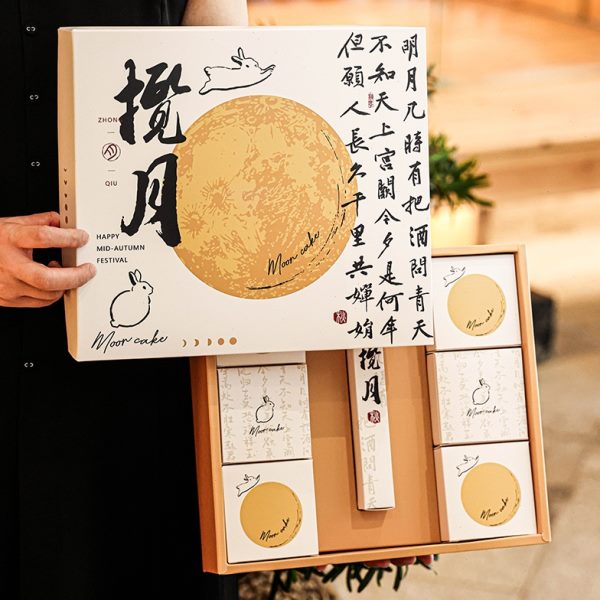 明月几時有把酒問青天
不知天上宮闕今夕是何年
但願人長久千里共嬋娟
攬月
ZHON
QIU
HAPPY
MID-AUTUMN
FESTIVAL
Moon cake
Moon cake
Moon cake
Moon cake
Moon cake
Moon cake
Moon cake
攬月
酒問青天